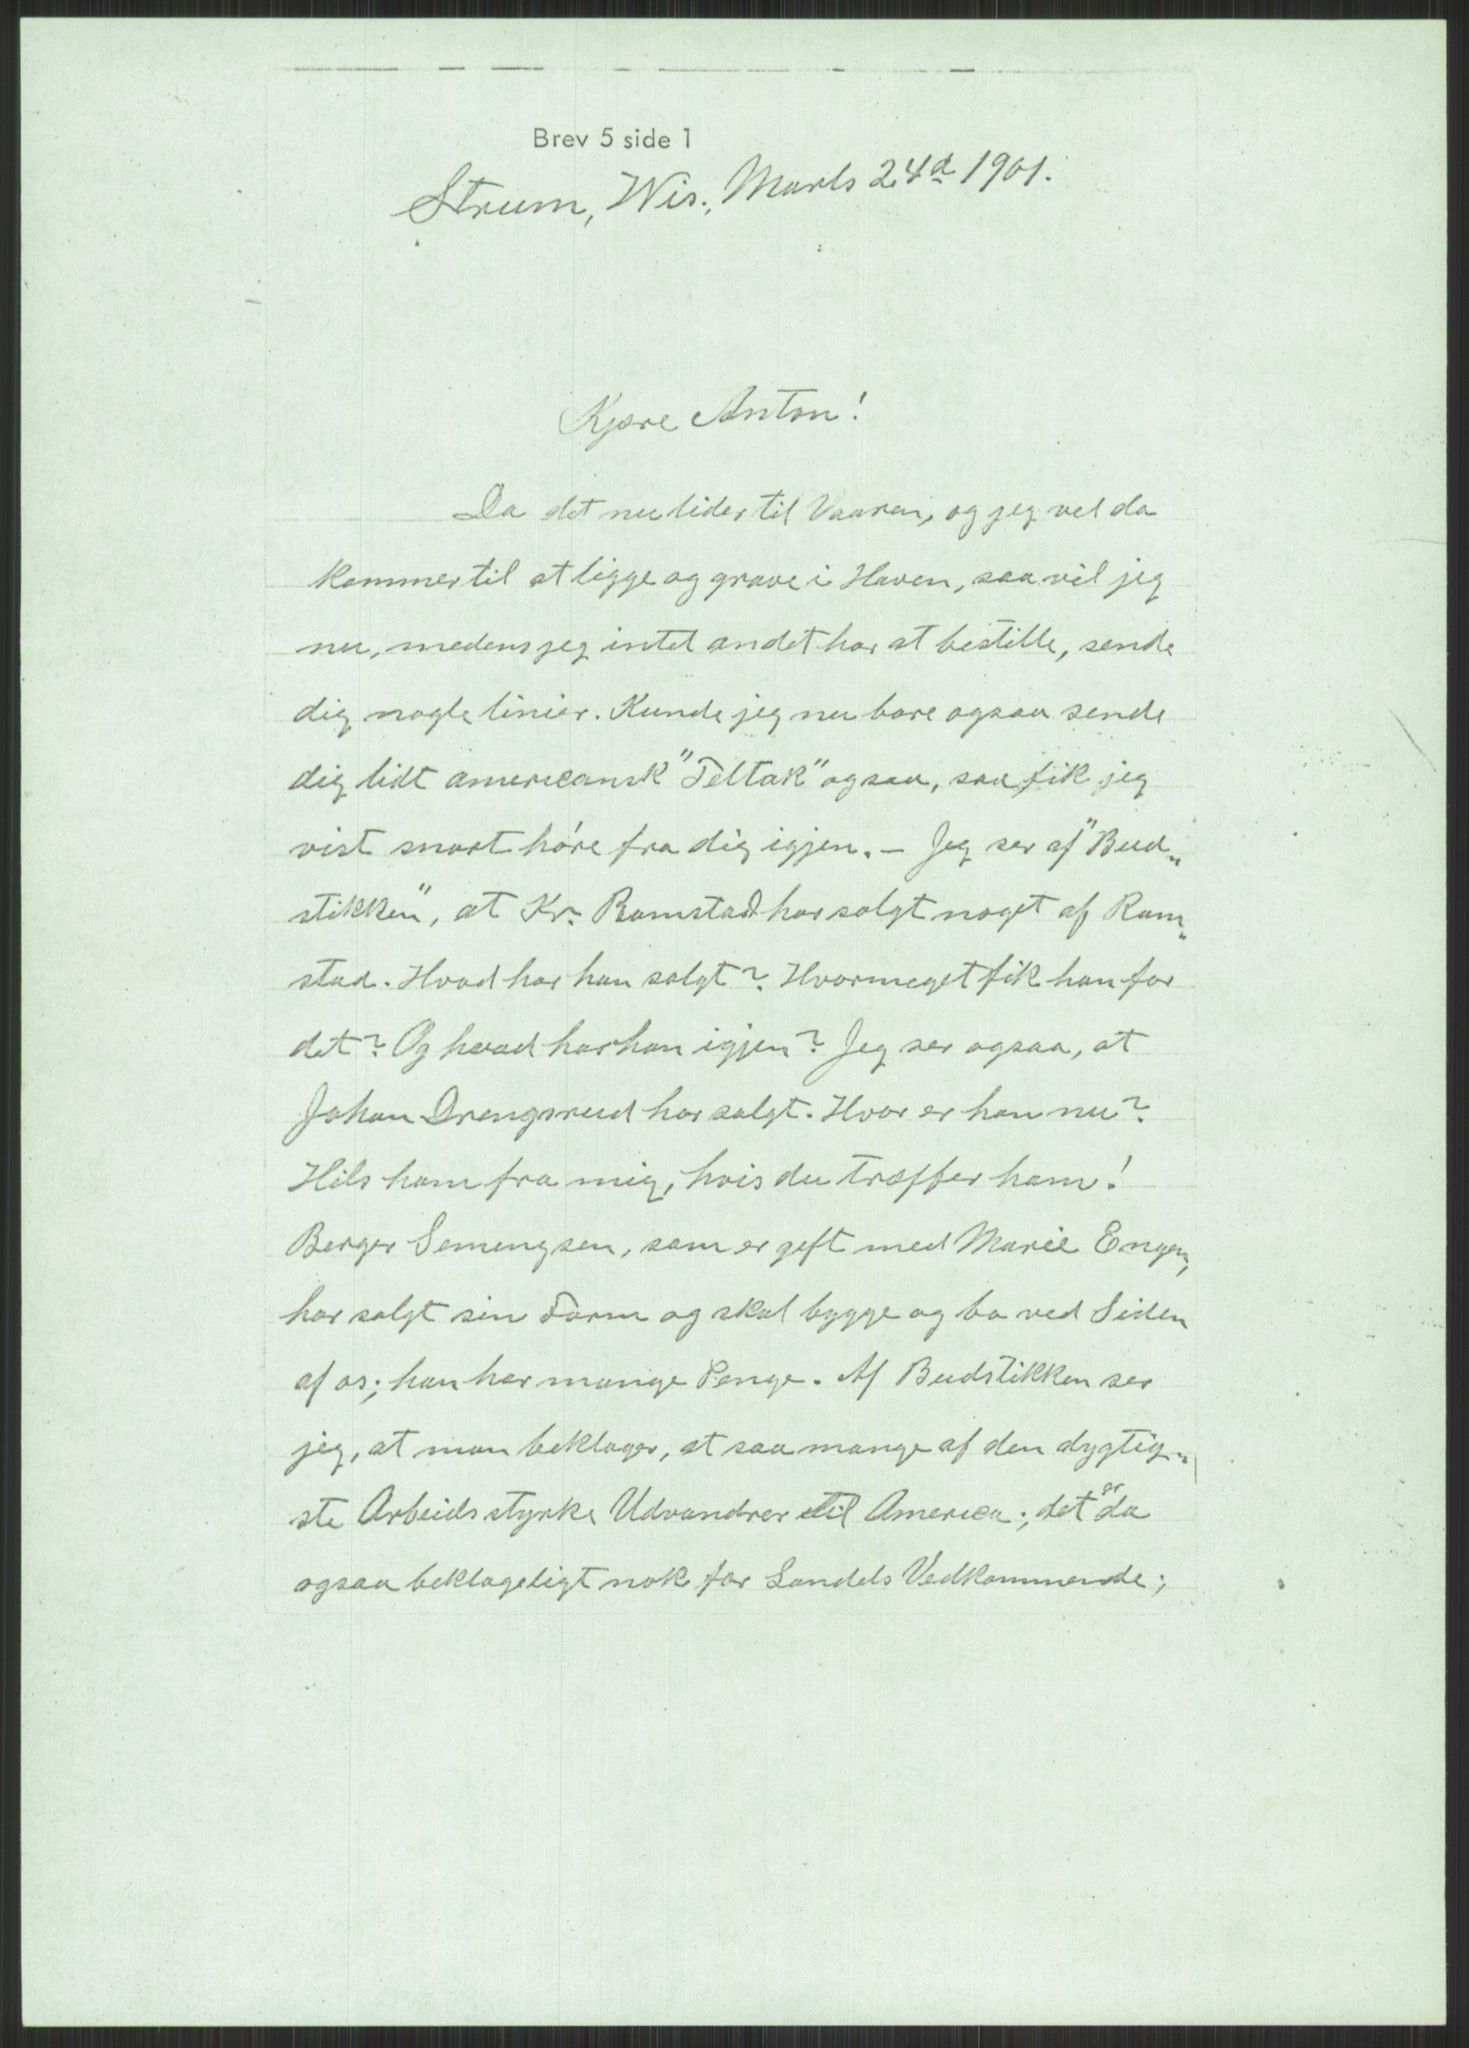 Brev 5 side 1
Strum, Wis., Marts 24d 1901.
Kjære Anton!
Da det nu lider til Vaaren, og jeg vel da
kommer til at ligge og grave i Haven, saa vil jeg
nu, medens jeg intet andet har at bestille, sende
dig nogle linier. Kunde jeg nu bare ogsaa sende
dig lidt americansk "Teltak" ogsaa, saa fik jeg
vist snart høre fra dig igjen. – Jeg ser af "Bud„
stikken", at Kr. Ramstad har solgt noget af Ram„
stad. Hvad har han solgt? Hvormeget fik han for
det? Og hvad har han igjen? Jeg ser ogsaa, at
Johan Drengsrud har solgt. Hvor er han nu?
Hils ham fra mig, hvis du træffer ham!
Berger Semengsen, som er gift med Marie Engen,
har solgt sin Farm og skal bygge og bo ved Siden
af os; han har mange Penge. Af Budstikken ser
jeg, at man beklager, at saa mange af den dygtig„
ste Arbeidsstyrke Udvandrer til America; det er da
ogsaa beklageligt nok for Landets Vedkommende;